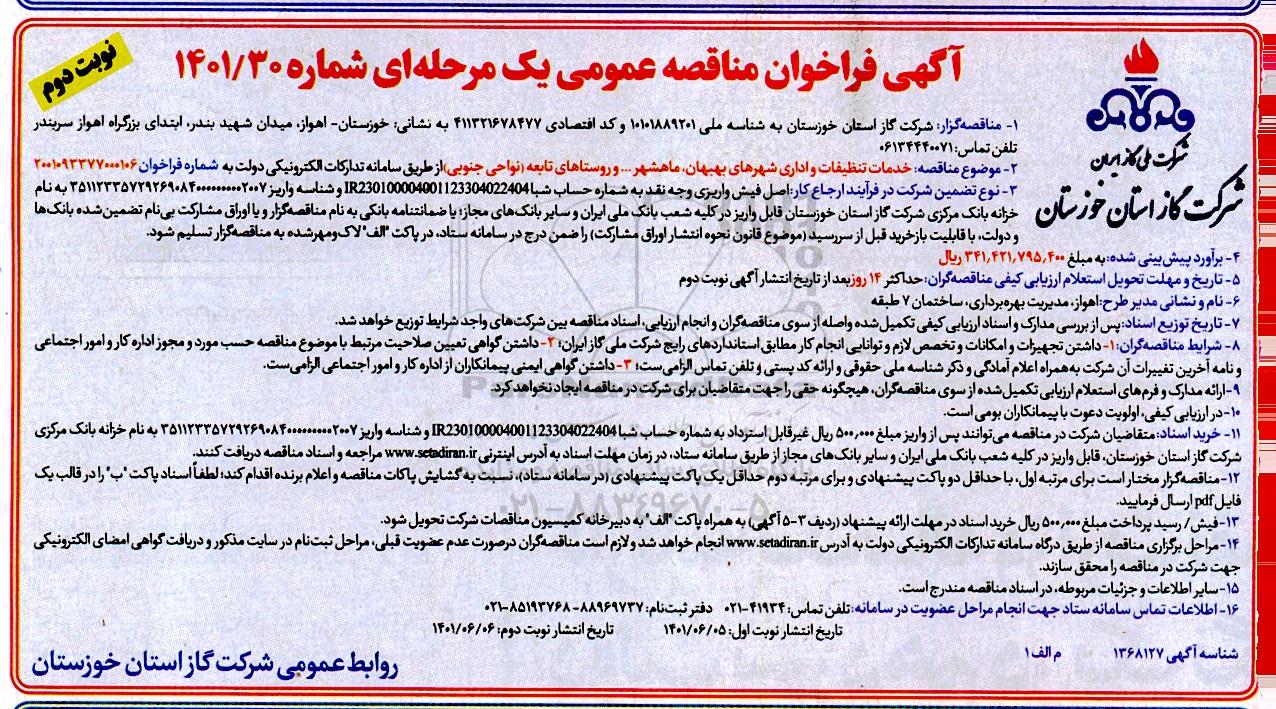 نوبت دوم
آگهی فراخوان مناقصه عمومی یک مرحله‌ای شماره ۱۴۰۱/۳۰
شرکت ملی گاز ایران
شرکت گاز استان خوزستان
۱- مناقصه‌گزار: شرکت گاز استان خوزستان به شناسه ملی ۱۰۱۰۱۸۸۹۲۰۱ و کد اقتصادی ۴۱۱۳۲۱۶۷۸۴۷۷ به نشانی: خوزستان- اهواز، میدان شهید بندر، ابتدای بزرگراه اهواز سربندر
تلفن تماس: ۰۶۱۳۴۴۴۰۰۷۱
۲- موضوع مناقصه: خدمات تنظیفات و اداری شهرهای بهبهان، ماهشهر ... و روستاهای تابعه (نواحی جنوبی) از طریق سامانه تدارکات الکترونیکی دولت به شماره فراخوان ۲۰۰۱۰۹۳۳۷۷۰۰۰۱۰۶
۳- نوع تضمین شرکت در فرآیند ارجاع کار: اصل فیش واریزی وجه نقد به شماره حساب شبا IR230100004001123304022404 و شناسه واریز ۳۵۱۱۲۳۳۵۷۲۹۲۶۹۰۸۴۰۰۰۰۰۰۰۰۰۰۲۰۰۷ به نام
خزانه بانک مرکزی شرکت گاز استان خوزستان قابل واریز در کلیه شعب بانک ملی ایران و سایر بانک‌های مجاز؛ یا ضمانتنامه بانکی به نام مناقصه‌گزار و یا اوراق مشارکت بی‌نام تضمین‌شده بانک‌ها
و دولت، با قابلیت بازخرید قبل از سررسید (موضوع قانون نحوه انتشار اوراق مشارکت) را ضمن درج در سامانه ستاد، در پاکت "الف" لاک‌ومهرشده به مناقصه‌گزار تسلیم شود.
۴- برآورد پیش‌بینی شده: به مبلغ ۳۴۱,۴۲۱,۷۹۵,۴۰۰ ریال
۵- تاریخ و مهلت تحویل استعلام ارزیابی کیفی مناقصه‌گران: حداکثر ۱۴ روز بعد از تاریخ انتشار آگهی نوبت دوم
۶- نام و نشانی مدیر طرح: اهواز، مدیریت بهره‌برداری، ساختمان ۷ طبقه
۷- تاریخ توزیع اسناد: پس از بررسی مدارک و اسناد ارزیابی کیفی تکمیل‌شده واصله از سوی مناقصه‌گران و انجام ارزیابی، اسناد مناقصه بین شرکت‌های واجد شرایط توزیع خواهد شد.
۸- شرایط مناقصه‌گران: ۱- داشتن تجهیزات و امکانات و تخصص لازم و توانایی انجام کار مطابق استانداردهای رایج شرکت ملی گاز ایران؛ ۲- داشتن گواهی تعیین صلاحیت مرتبط با موضوع مناقصه حسب مورد و مجوز اداره کار و امور اجتماعی
و نامه آخرین تغییرات آن شرکت به‌همراه اعلام آمادگی و ذکر شناسه ملی حقوقی و ارائه کد پستی و تلفن تماس الزامی‌ست؛ ۳- داشتن گواهی ایمنی پیمانکاران از اداره کار و امور اجتماعی الزامی‌ست.
۹- ارائه مدارک و فرم‌های استعلام ارزیابی تکمیل‌شده از سوی مناقصه‌گران، هیچگونه حقی را جهت متقاضیان برای شرکت در مناقصه ایجاد نخواهد کرد.
۱۰- در ارزیابی کیفی، اولویت دعوت با پیمانکاران بومی است.
۱۱- خرید اسناد: متقاضیان شرکت در مناقصه می‌توانند پس از واریز مبلغ ۵۰۰,۰۰۰ ریال غیرقابل استرداد به شماره حساب شبا IR230100004001123304022404 و شناسه واریز ۳۵۱۱۲۳۳۵۷۲۹۲۶۹۰۸۴۰۰۰۰۰۰۰۰۰۰۲۰۰۷ به نام خزانه بانک مرکزی
شرکت گاز استان خوزستان، قابل واریز در کلیه شعب بانک ملی ایران و سایر بانک‌های مجاز از طریق سامانه ستاد، در زمان مهلت اسناد به آدرس اینترنتی www.setadiran.ir مراجعه و اسناد مناقصه دریافت کنند.
۱۲- مناقصه‌گزار مختار است برای مرتبه اول، با حداقل دو پاکت پیشنهادی و برای مرتبه دوم حداقل یک پاکت پیشنهادی (در سامانه ستاد)، نسبت به گشایش پاکات مناقصه و اعلام برنده اقدام کند؛ لطفاً اسناد پاکت "ب" را در قالب یک
فایل pdf ارسال فرمایید.
۱۳- فیش/ رسید پرداخت مبلغ ۵۰۰,۰۰۰ ریال خرید اسناد در مهلت ارائه پیشنهاد (ردیف ۳-۵ آگهی) به همراه پاکت "الف" به دبیرخانه کمیسیون مناقصات شرکت تحویل شود.
۱۴- مراحل برگزاری مناقصه از طریق درگاه سامانه تدارکات الکترونیکی دولت به آدرس www.setadiran.ir انجام خواهد شد و لازم است مناقصه‌گران درصورت عدم عضویت قبلی، مراحل ثبت‌نام در سایت مذکور و دریافت گواهی امضای الکترونیکی
جهت شرکت در مناقصه را محقق سازند.
۱۵- سایر اطلاعات و جزئیات مربوطه، در اسناد مناقصه مندرج است.
۱۶- اطلاعات تماس سامانه ستاد جهت انجام مراحل عضویت در سامانه: تلفن تماس: ۴۱۹۳۴-۰۲۱ دفتر ثبت‌نام: ۸۸۹۶۹۷۳۷- ۸۵۱۹۳۷۶۸-۰۲۱
تاریخ انتشار نوبت اول: ۱۴۰۱/۰۶/۰۵ تاریخ انتشار نوبت دوم: ۱۴۰۱/۰۶/۰۶
شناسه آگهی ۱۳۶۸۱۲۷ م الف ۱
روابط عمومی شرکت گاز استان خوزستان
۰۲۱-۸۸۳۴۹۶۷۰-۵